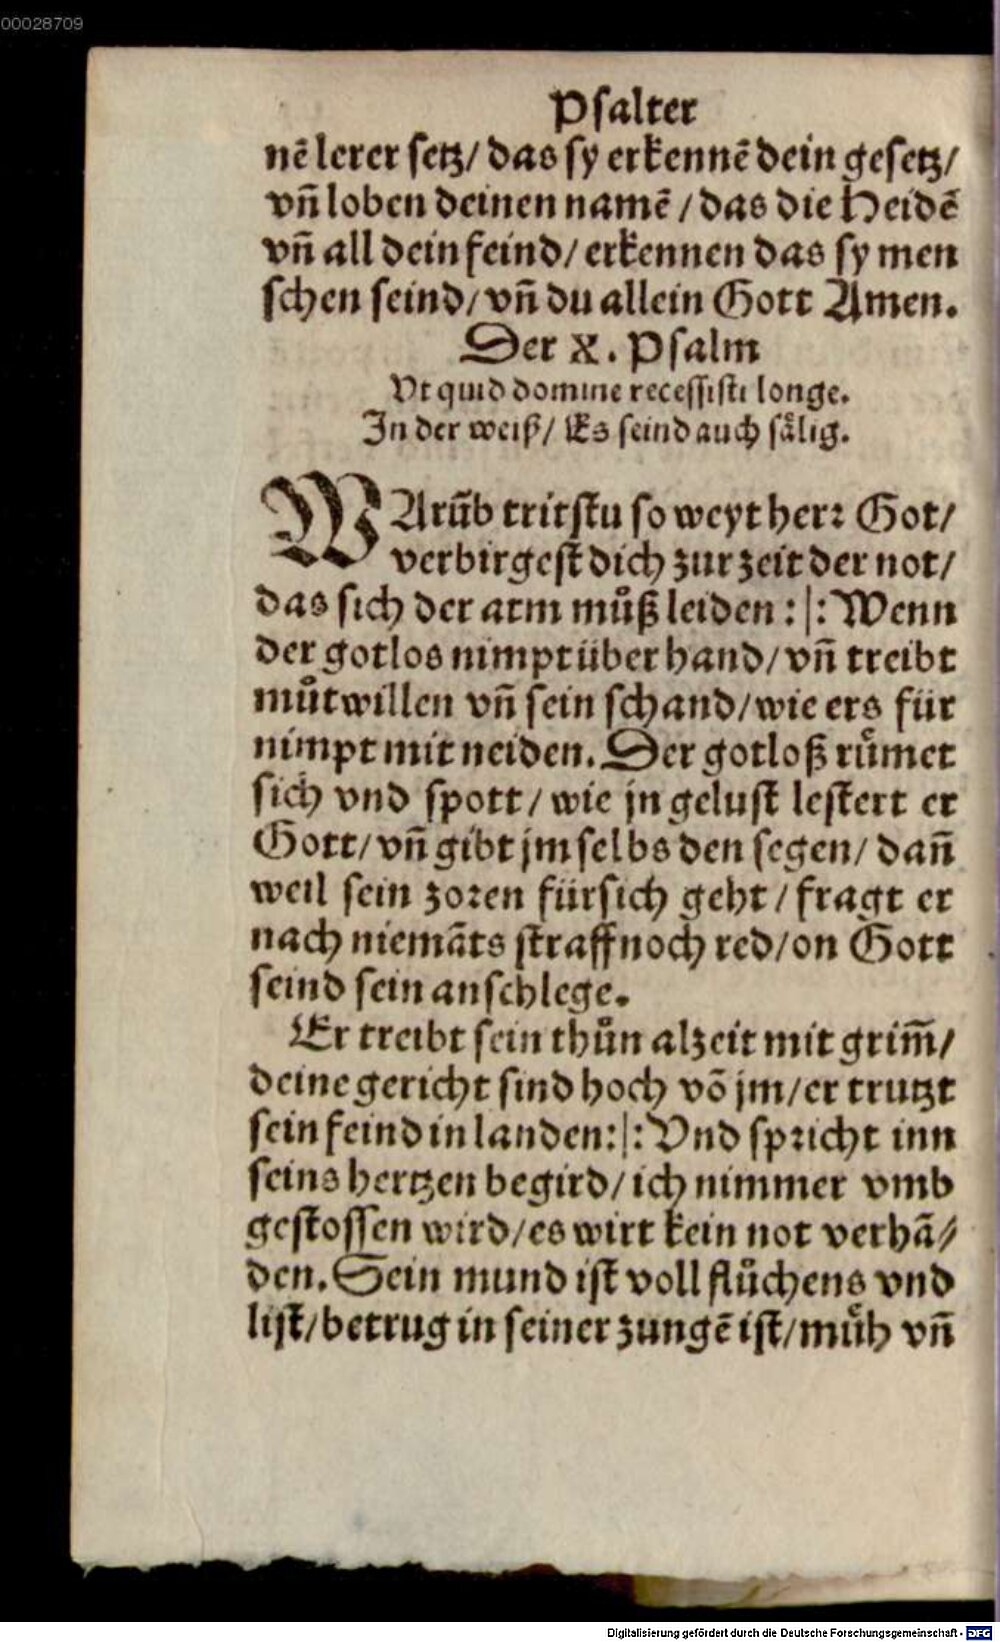 00028709
Psalter
nẽ lerer setz/ das sy erkennẽ dein gesetz/
vñ loben deinen namẽ / das die Heidẽ
vñ all dein feind/ erkennen das sy men
schen seind/ vñ du allein Gott Amen.
Der X. Psalm
Vt quid domine recessisti longe.
In der weiß/ Es seind auch sålig.
WArũb tritstu so weyt herr Got/
verbirgest dich zur zeit der not/
das sich der arm můß leiden :|: Wenn
der gotlos nimpt über hand/ vñ treibt
můtwillen vñ sein schand/ wie ers für
nimpt mit neiden. Der gotloß růmet
sich vnd spott/ wie jn gelust lestert er
Gott/ vñ gibt jm selbs den segen/ dañ
weil sein zoren fürsich geht / fragt er
nach niemãts straff noch red/ on Gott
seind sein anschlege.
Er treibt sein thůn alzeit mit grim̃/
deine gericht sind hoch võ jm/ er trutzt
sein feind in landen:|: Vnd spricht inn
seins hertzen begird/ ich nimmer vmb
gestossen wird/ es wirt kein not verhã⸗
den. Sein mund ist voll flůchens vnd
list/ betrug in seiner zungẽ ist/ můh vñ
Digitalisierung gefördert durch die Deutsche Forschungsgemeinschaft - DFG